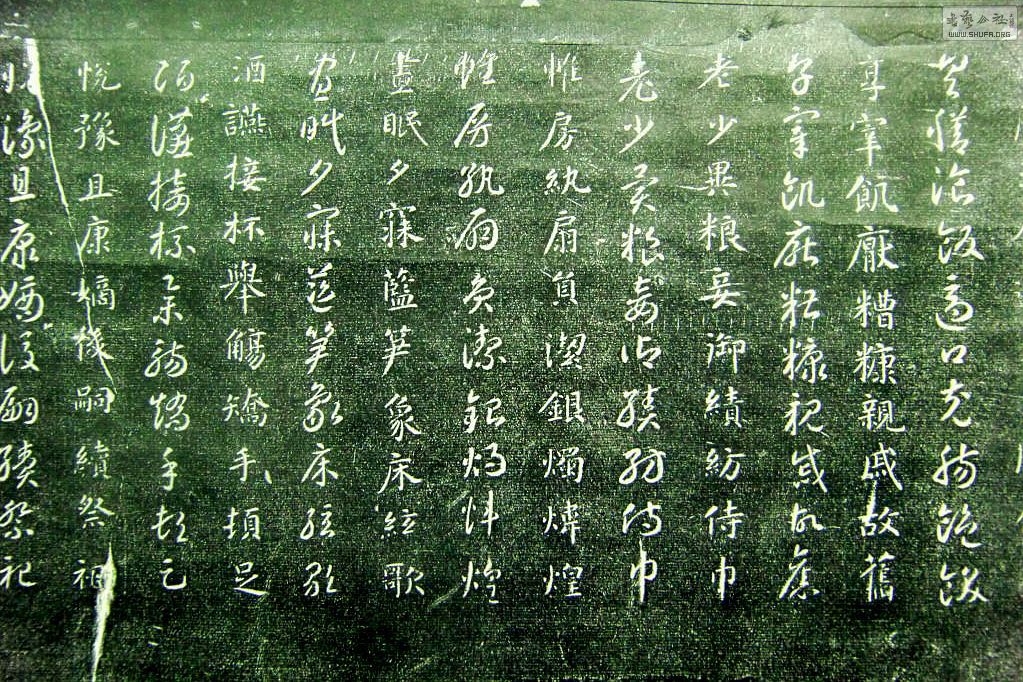 具膳飡飯適口充腸飽飫
享宰飢厭糟糠親戚故舊
享宰飢厭糟糠親戚故舊
老少異粮妾御績紡侍巾
老少異粮妾御績紡侍巾
帷房紈扇員潔銀燭煒煌
帷房紈扇員潔銀燭煒煌
晝眠夕寐藍笋象床絃歌
晝眠夕寐藍笋象床絃歌
酒讌接杯舉觴矯手頓足
酒讌接杯舉觴矯手頓足
悅豫且康嫡後嗣續祭祀
悅豫且康嫡後嗣續祭祀
書藝公社
WWW.SHUFA.ORG